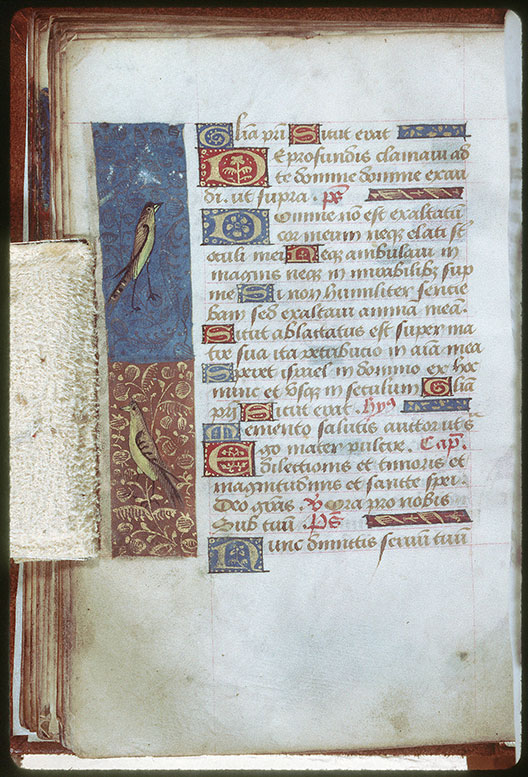 Glia pri Sicut erat
De profundis clamavi ad
te domine domine exau
di. ut supra. ps
Domine no est exaltatu
cor meum neq elati st
oculi mei Neq ambulavi in
magnis neq in mirabilibz sup
me Si non humiliter sentie
bam sed exaltavi anima mea.
Sicut ablactatus est super ma
tre sua ita retribucio in aia mea
Speret israel in domino ex hoc
nunc et usq in seculum Glia
pri Sicut erat. hyg
Memento salutis auctor ut s.
Ego mater pulcre. Cap.
dilectionis et timoris et
magnitudinis et sancte spei.
Deo gras. v Ora pro nobis
Sub tuu. Ps
Nunc dimittis servu tuu